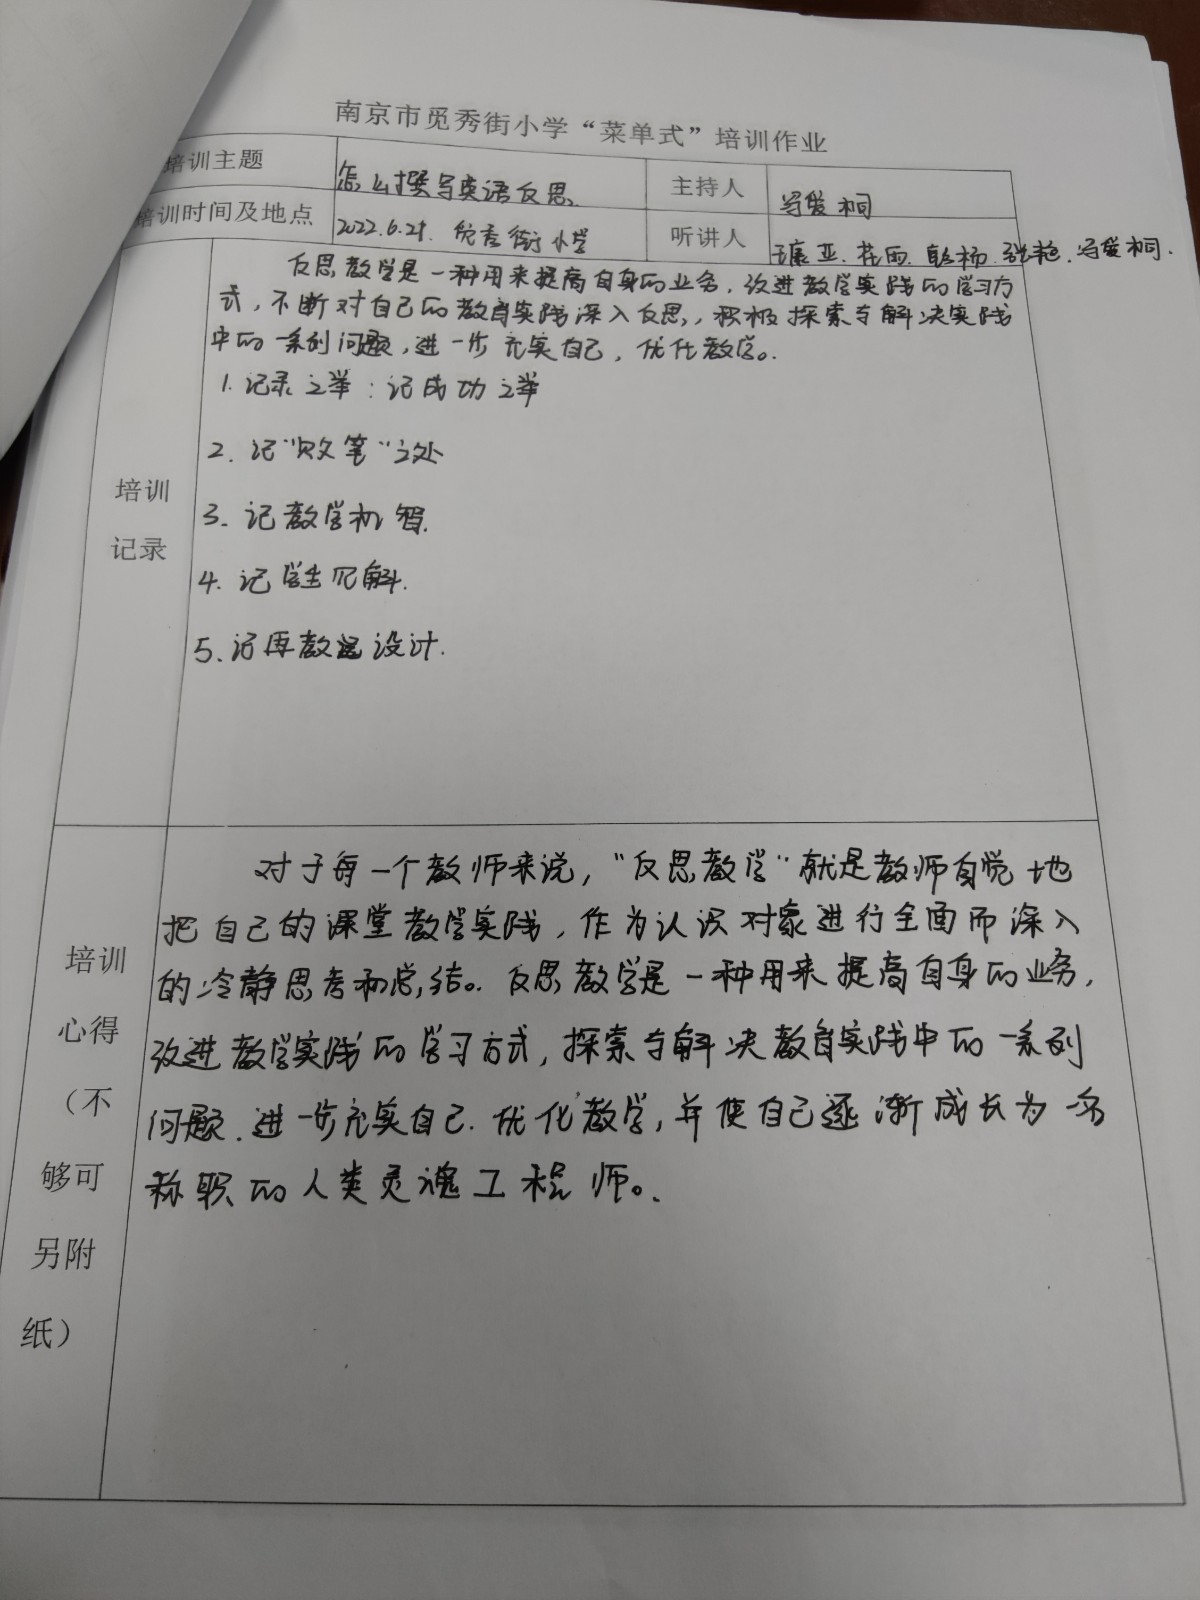 南京市觅秀街小学“菜单式”培训作业
培训主题 怎么撰写英语反思. 主持人 爱桐
培训时间及地点 2022.6.21. 觅秀街小学 听讲人 王康亚. 花雨. 杨. 张艳. 爱桐.
反思教学是一种用来提高自身的业务, 改进教学实践的学习方
式, 不断对自己的教育实践深入反思, 积极探索与解决实践
中的一系列问题, 进一步充实自己, 优化教学。
1. 记录之举: 记成功之举
2. 记“败笔”之处
3. 记教学机智.
4. 记学生见解.
5. 记再教设计.
培训
记录
对于每一个教师来说, “反思教学”就是教师自觉地
把自己的课堂教学实践, 作为认识对象进行全面而深入
的冷静思考和总结。反思教学是一种用来提高自身的业务,
改进教学实践的学习方式, 探索与解决教育实践中的一系列
问题. 进一步充实自己. 优化教学, 并使自己逐渐成长为一名
称职的人类灵魂工程师。
培训
心得
（不
够可
另附
纸）